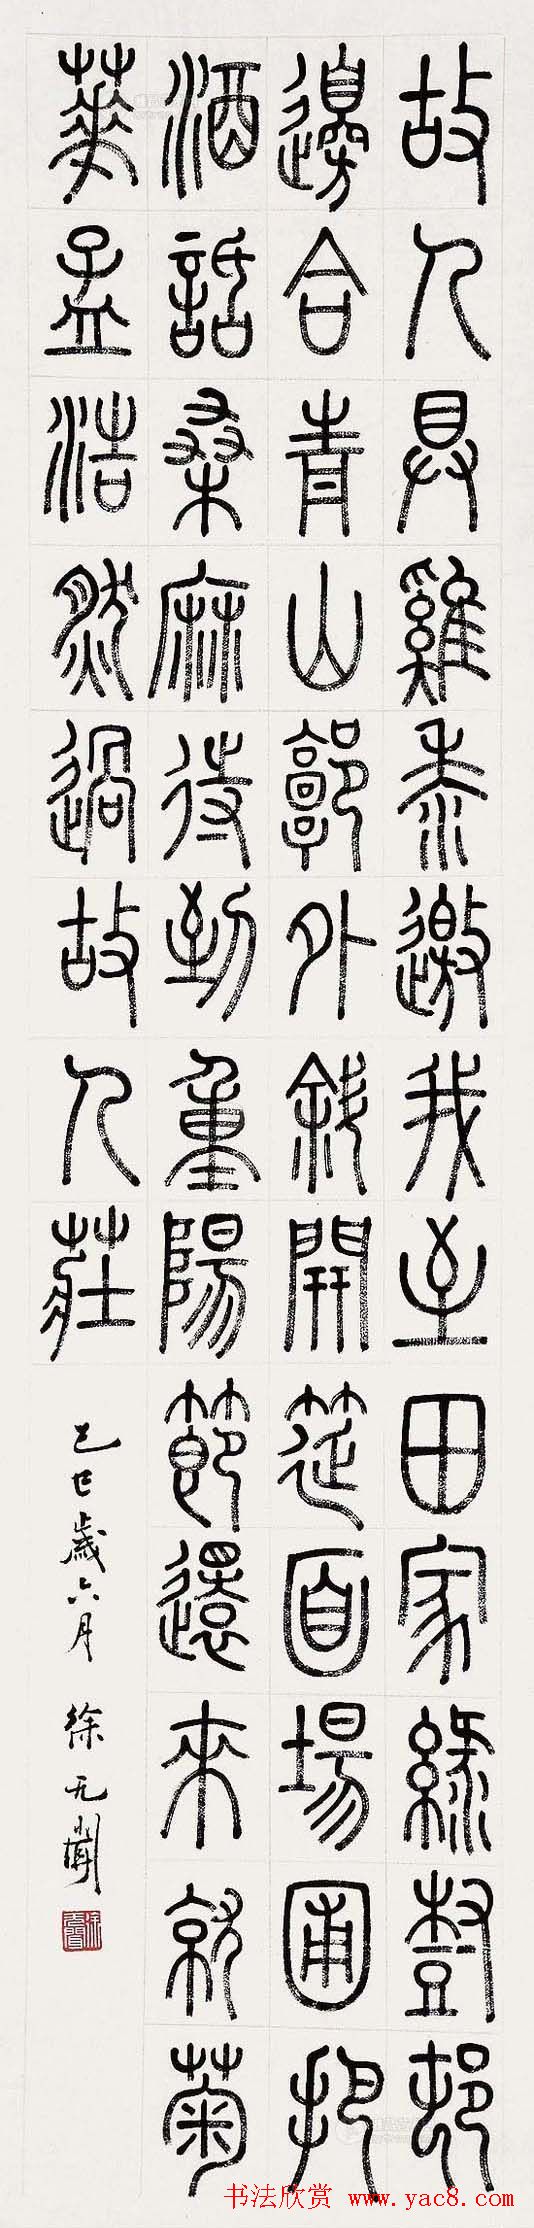 故人具雞黍邀我至田家綠樹邨
邊合青山郭外斜開筵面場圃把
酒話桑麻待到重陽節還來就菊
華孟浩然過故人莊
己巳歲六月 徐无聞
书法欣赏 www.yac8.com